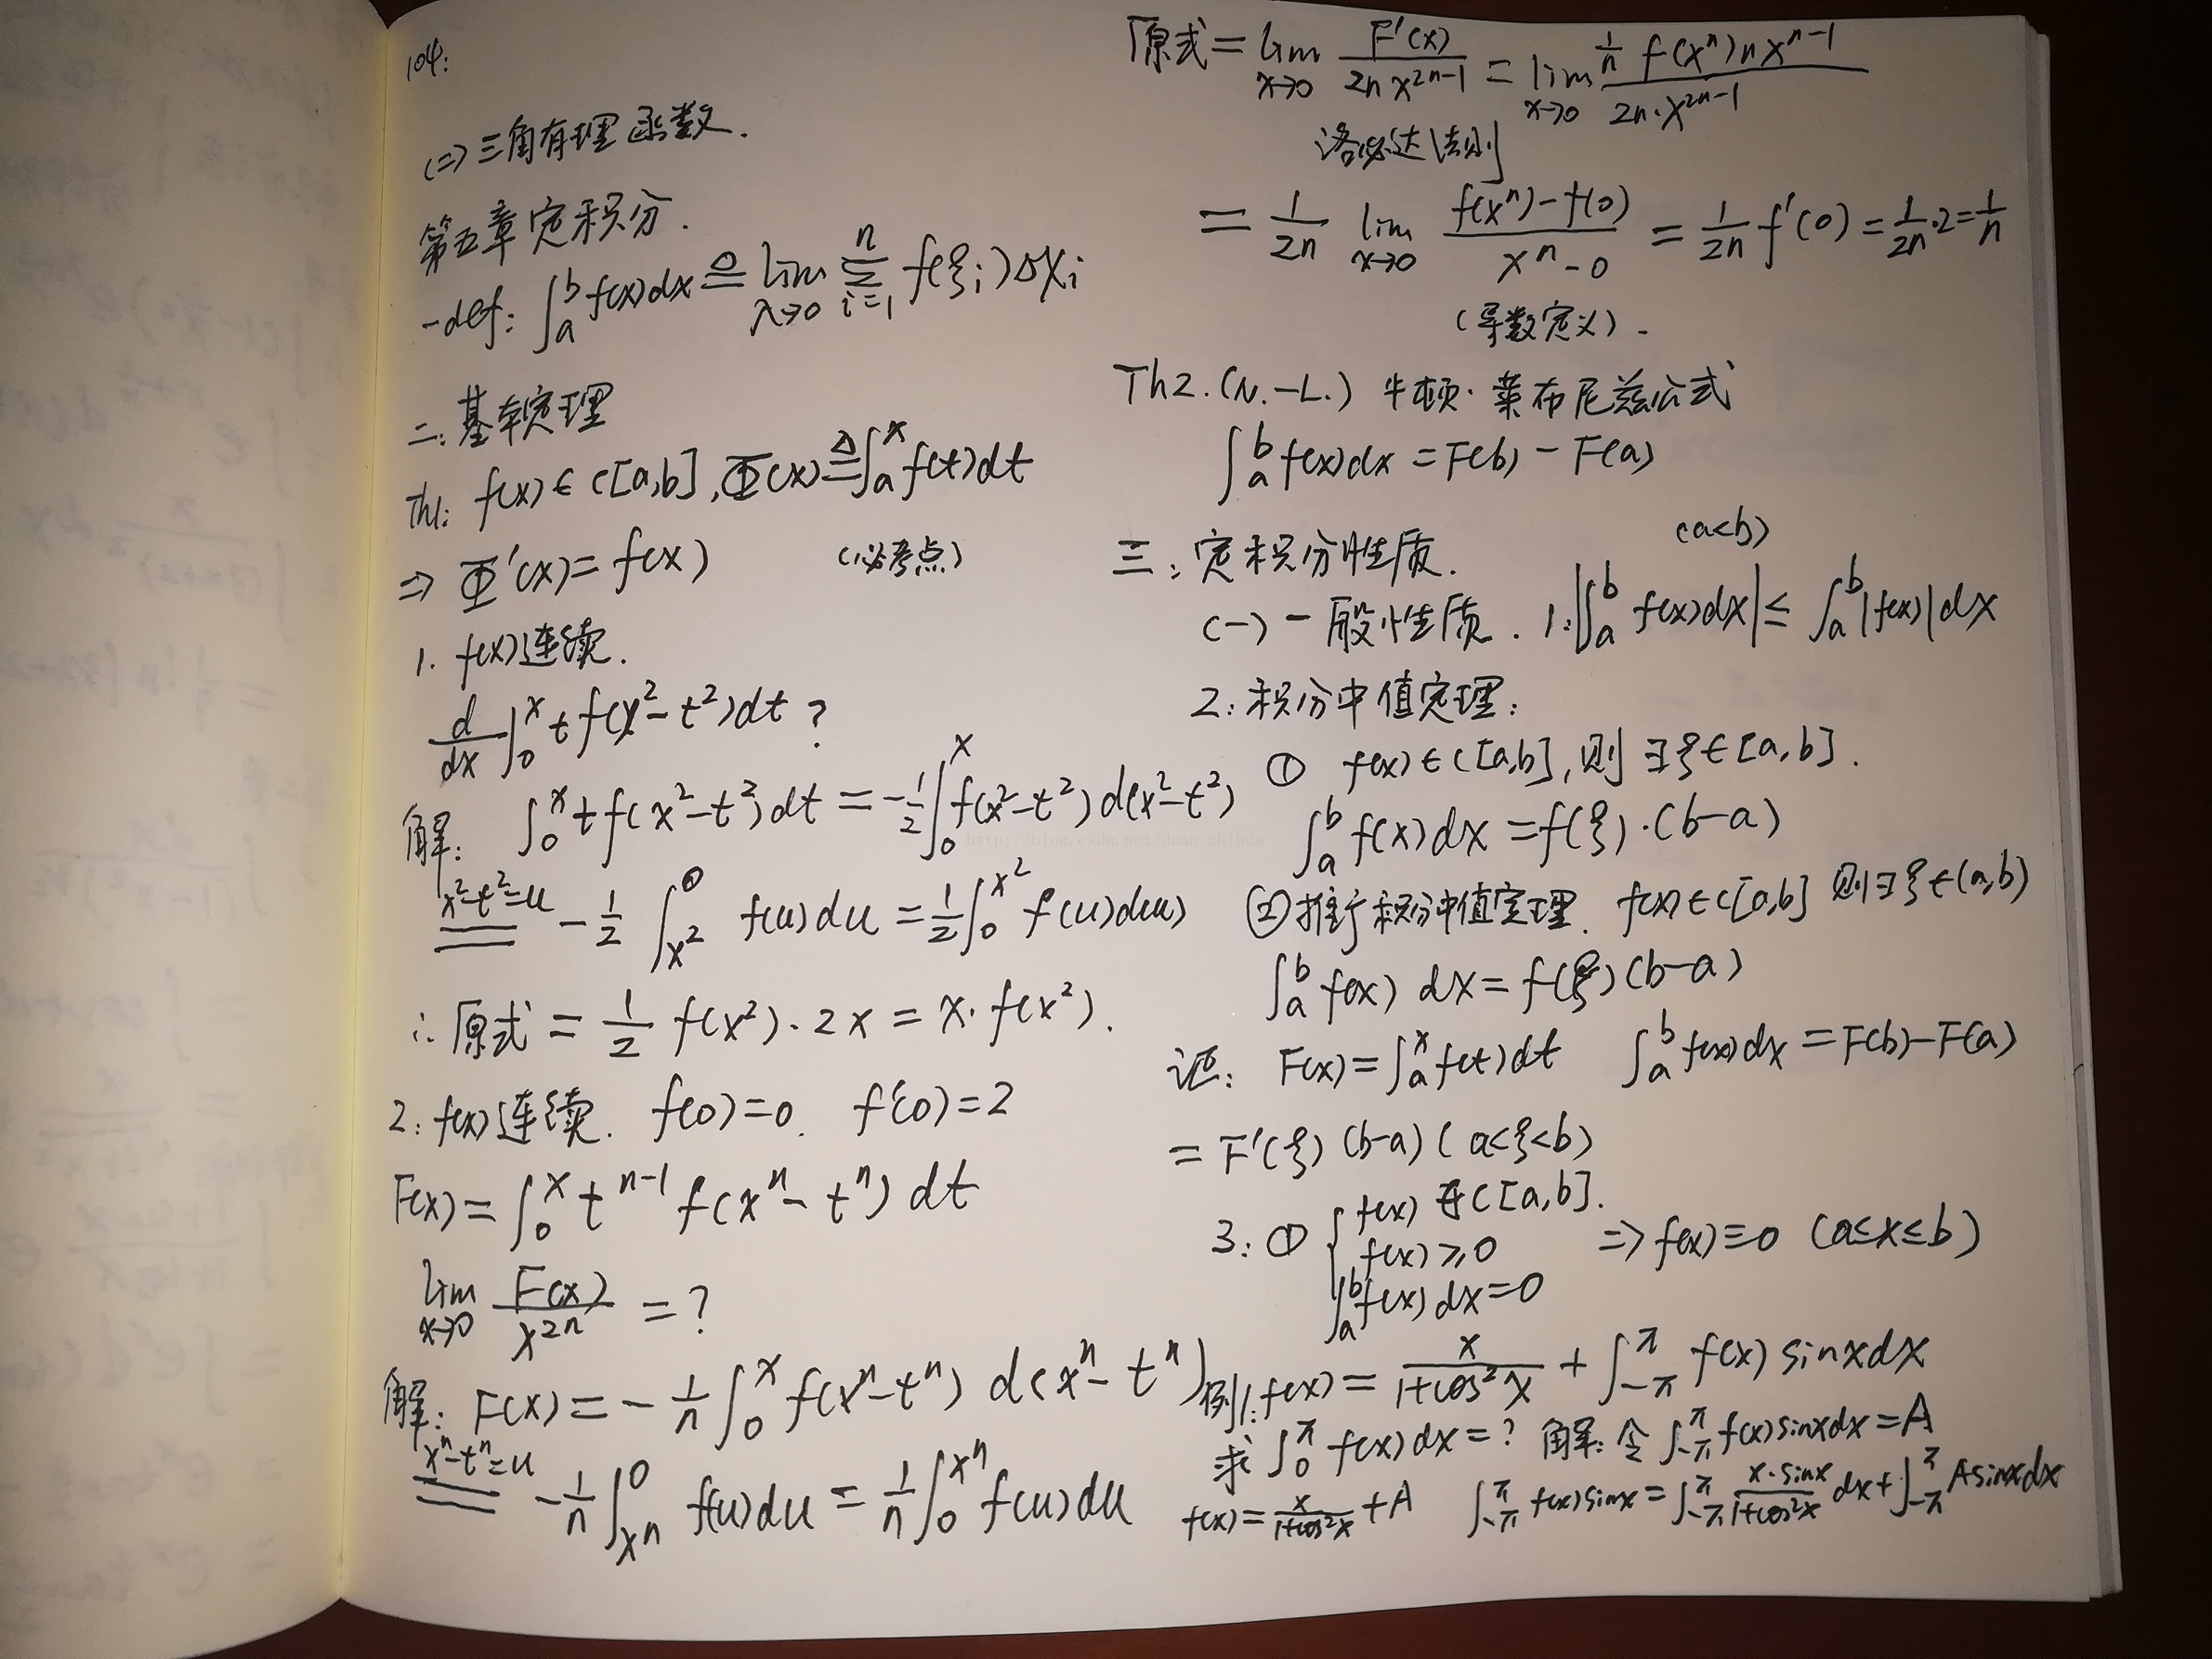 104:
(二)三角有理函数.
第五章定积分.
一def: ∫_a^b f(x)dx ≜ lim_{λ→0} Σ_{i=1}^n f(ξ_i)Δx_i
二:基本定理
Th1: f(x)∈C[a,b], Φ(x)≜∫_a^x f(t)dt
⇒ Φ'(x)=f(x) (必考点)
1. f(x)连续.
d/dx ∫_0^x t f(x²-t²)dt ?
解: ∫_0^x t f(x²-t²)dt = -1/2 ∫_0^x f(x²-t²)d(x²-t²)
x²-t²=u -1/2 ∫_{x²}^0 f(u)du = 1/2 ∫_0^{x²} f(u)d(u)
∴原式 = 1/2 f(x²)·2x = x·f(x²).
2: f(x)连续. f(0)=0. f'(0)=2
F(x)=∫_0^x t^{n-1} f(x^n-t^n)dt
lim_{x→0} F(x)/x^{2n} = ?
解: F(x)= -1/n ∫_0^x f(x^n-t^n) d(x^n-t^n)
x^n-t^n=u -1/n ∫_{x^n}^0 f(u)du = 1/n ∫_0^{x^n} f(u)du
原式 = lim_{x→0} F'(x)/2n x^{2n-1} = lim_{x→0} 1/n f(x^n)n x^{n-1}/2n·x^{2n-1}
洛必达法则
= 1/2n lim_{x→0} f(x^n)-f(0)/x^n-0 = 1/2n f'(0) = 1/2n·2 = 1/n
(导数定义).
Th2.(N.-L.) 牛顿·莱布尼兹公式
∫_a^b f(x)dx = F(b)-F(a)
三:定积分性质. (a<b)
(一)一般性质. 1:|∫_a^b f(x)dx| ≤ ∫_a^b |f(x)|dx
2:积分中值定理:
① f(x)∈C[a,b],则∃ξ∈[a,b].
∫_a^b f(x)dx = f(ξ)·(b-a)
②推广积分中值定理. f(x)∈C[a,b] 则∃ξ∈(a,b)
∫_a^b f(x) dx = f(ξ)(b-a)
证: F(x)=∫_a^x f(t)dt ∫_a^b f(x)dx = F(b)-F(a)
= F'(ξ)(b-a) (a<ξ<b)
3: ① { f(x)∈C[a,b].
f(x)≥0 ⇒ f(x)≡0 (a≤x≤b)
∫_a^b f(x)dx=0
例1: f(x) = x/1+cos²x + ∫_{-π}^π f(x) sinxdx
求 ∫_0^π f(x)dx=? 解:令∫_{-π}^π f(x)sinxdx=A
f(x)= x/1+cos²x +A ∫_{-π}^π f(x)sinx=∫_{-π}^π x·sinx/1+cos²x dx+∫_{-π}^π Asinxdx
http://blog.csdn.net/duan_zhihua